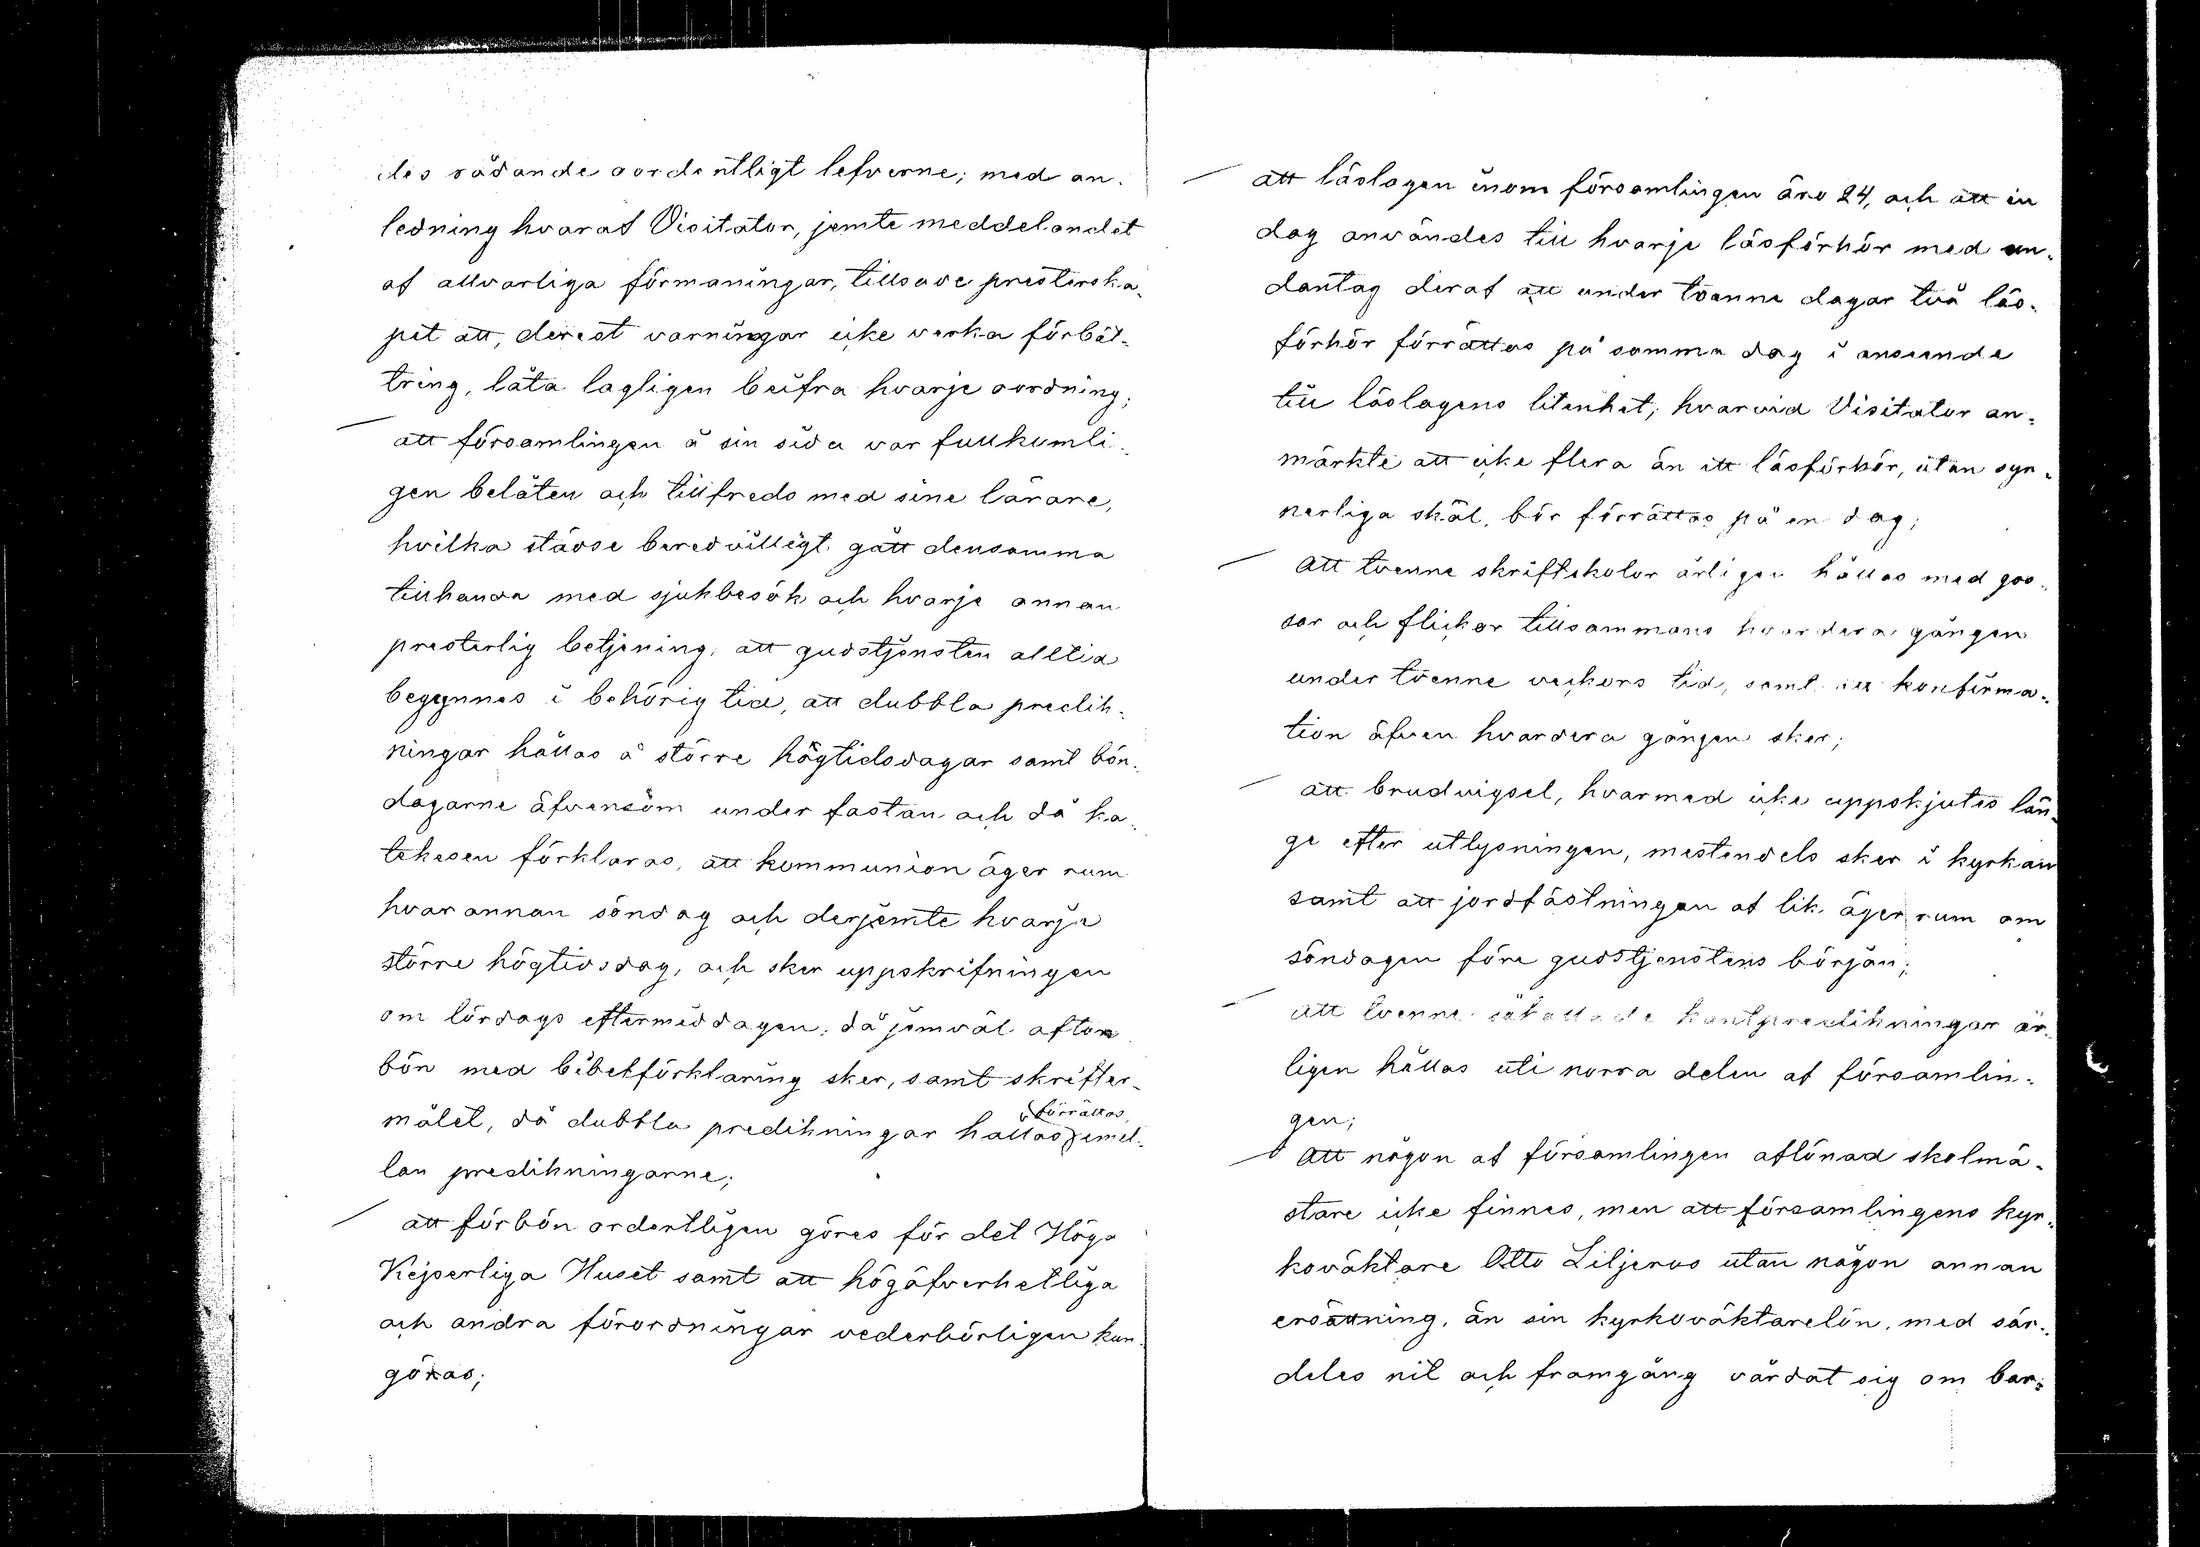 des rådande oordentligt lefverne; med an-
ledning hvaraf Visitator, jemte meddelandet
af allvarliga förmaningar, tillsade prestérska-
pet att, derest varningar icke verka förbät-
tring, låta lagligen beifra hvarje oordning;
att församlingen å sin sida var fullkomli-
gen belåten och tillfreds med sine lärare,
hvilka städse beredvilligt gått densamma
tillhanda med sjukbesök och hvarje annan
presterlig betjening, att gudstjensten alltid
begynnes i behörig tid, att dubbla predik-
ningar hållas å större högtidsdagar samt bön-
dagarne äfvensom under fastan och då ka-
tekesen förklaras, att kommunion äger rum
hvarannan söndag och derjemte hvarje
större högtidsdag, och sker uppskrifningen
om lördags eftermiddagen, då jemväl afton
bön med bibelförklaring sker, samt skrifter-
målet, då dubbla predikningar hållas, förrättas emel-
lan predikningarne;
att förbön ordentligen göres för det Höga
Kejserliga Huset samt att högöfverhetliga
och andra förordningar vederbörligen kun-
göras;
att läslagen inom församlingen äro 24, och att en
dag användes till hvarje läsförhör med un-
dantag deraf att under tvenne dagar två läs-
förhör förrättas på samma dag i anseende
till läslagens litenhet; hvarvid Visitator an-
märkte att icke flera än ett läsförhör, utan syn-
nerliga skäl, bör förrättas på en dag;
Att tvenne skriftskolor årligen hållas med gos-
sar och flickor tillsammans hvardera gången
under tvenne veckors tid, samt att konfirma-
tion äfven hvardera gången sker;
att brudvigsel, hvarmed icke uppskjutes län-
ge efter utlysningen, mestendels sker i kyrkan
samt att jordfästningen af lik äger rum om
söndagen före gudstjenstens början;
att tvenne såkallade kantpredikningar år-
ligen hållas uti norra delen af församlin-
gen;
Att någon af församlingen aflönad skolmä-
stare icke finnes, men att församlingens kyr-
koväktare Otto Liljeros utan någon annan
ersättning, än sin kyrkoväktarelön, med sär-
deles nit och framgång vårdat sig om bar-